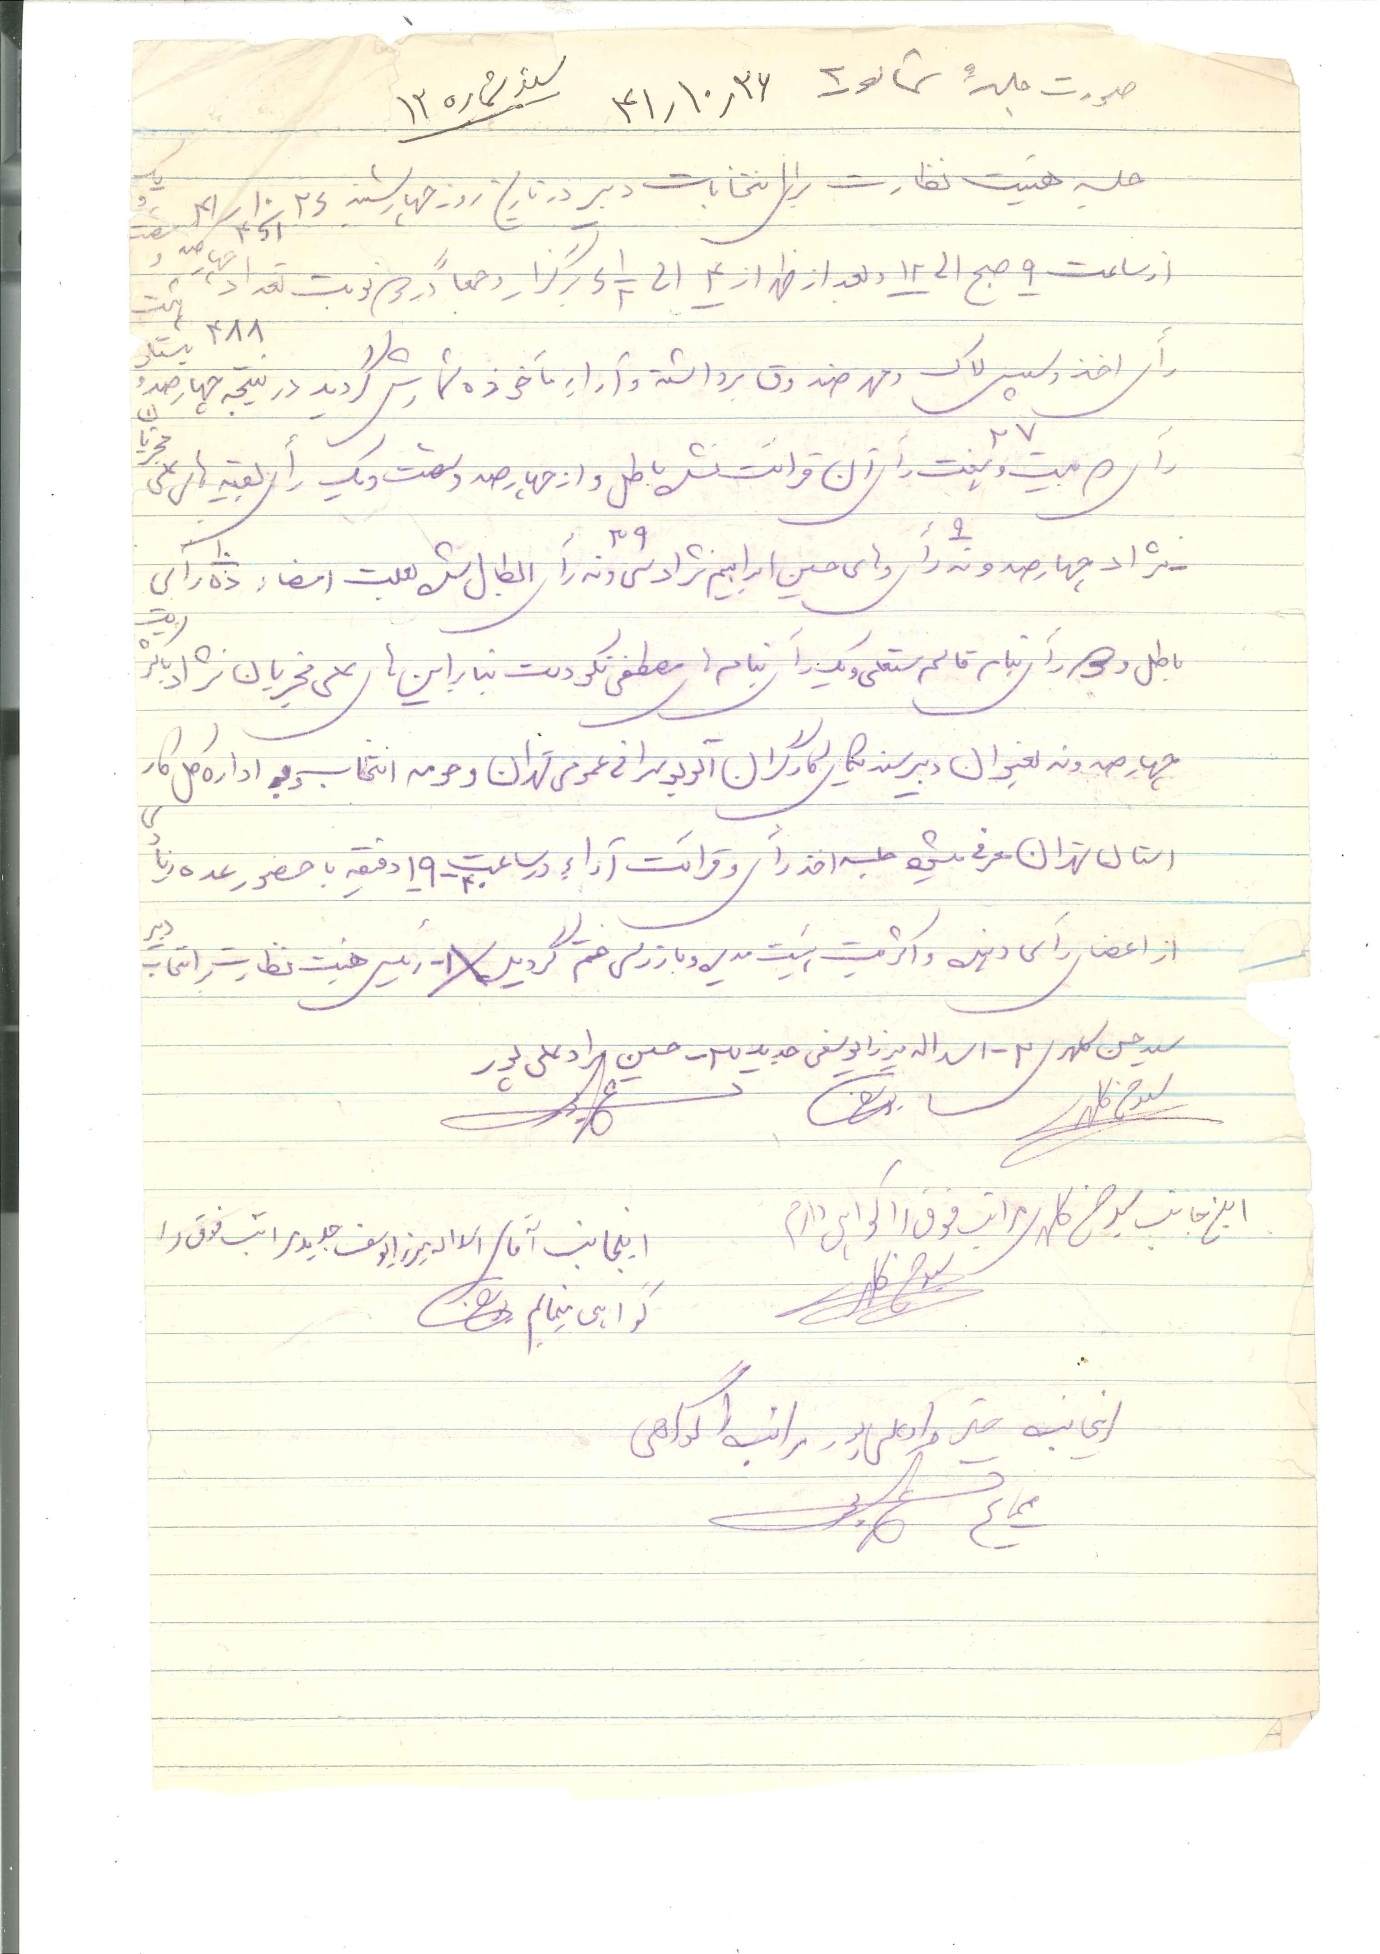 صورت جلسهٔ شماره ۲ ۴۱/۱۰/۲۶ سند شماره ۱۲
جلسه هیئت نظارت برای انتخابات دبیر در تاریخ روز چهارشنبه ۲۶/۱۰/۴۱
از ساعت ۹ صبح الی ۱۲ و بعد از ظهر از ۴ الی برگزار و جمعاً در دو نوبت تعداد چهارصد و
رأی اخذ و سپس لاک و مهر صندوق برداشته و آراء مأخوذه شمارش گردید در نتیجه چهارصد و ۴۸۸
رأی بیست و هفت ۲۷ رأی آن قرائت نشد باطل و از چهارصد و شصت و یک رأی بقیه آقای علی
نژاد چهارصد و نه رأی و آقای حسین ابراهیم نژاد سی و نه ۳۹ رأی ابطال شد بعلت امضاء ده ۱۰ رأی
باطل و دو رأی بنام قاسم ستعلی و یک رأی بنام آقای مصطفی نکودست بنابراین آقای علی مخبریان نژاد با
چهارصد و نه بعنوان دبیر سندیکای کارگران اتوبوسرانی عمومی تهران و حومه انتخاب و به اداره کل کار
استان تهران معرفی میشود جلسه اخذ رأی و قرائت آراء در ساعت ۱۹ دقیقه با حضور عده زیادی
از اعضای رأی دهنده و اکثریت هیئت مدیره و بازرسی ختم گردید ۱- رئیس هیئت نظارت بر انتخاب دبیر
سید حسن کلهری ۲- اسداله میرزا یوسفی جدید ۳- حسین مراد علی پور
اینجانب سید حسن کلهری مراتب فوق را گواهی دارم
اینجانب آقای اسداله میرزا یوسف جدید مراتب فوق را
گواهی مینمایم
اینجانب حسین مراد علی پور مراتب را گواهی